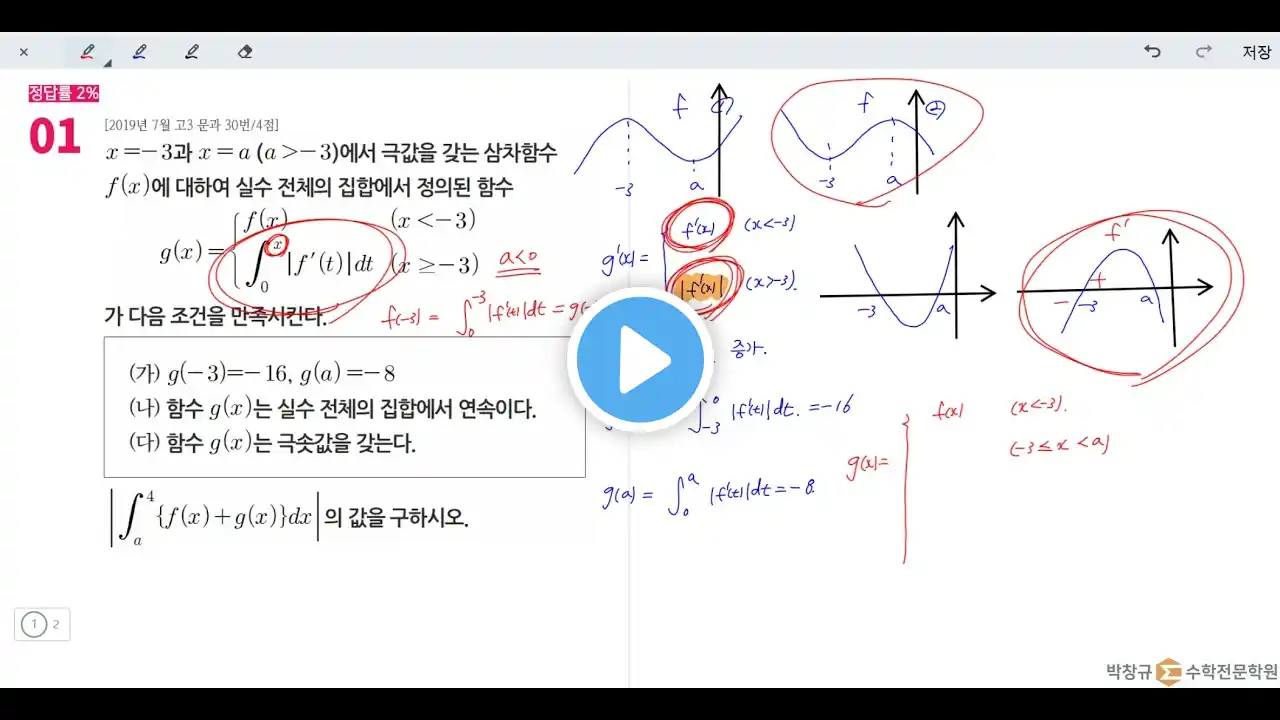 저장
정답률 2%
01
[2019년 7월 고3 문과 30번/4점]
x=-3과 x=a (a>-3)에서 극값을 갖는 삼차함수
f(x)에 대하여 실수 전체의 집합에서 정의된 함수
g(x)={ f(x) (x<-3)
∫₀ˣ|f′(t)|dt (x≥-3)
a<0
가 다음 조건을 만족시킨다.
f(-3) = ∫₀⁻³|f′(t)|dt = g(
(가) g(-3)=-16, g(a)=-8
(나) 함수 g(x)는 실수 전체의 집합에서 연속이다.
(다) 함수 g(x)는 극솟값을 갖는다.
|∫ₐ⁴{f(x)+g(x)}dx|의 값을 구하시오.
1 2
f ①
-3 a
f ②
-3 a
g′(x)= f′(x) (x<-3)
|f′(x)| (x>-3).
-3 a
f′
- + -3 a
증가.
∫₋₃⁰|f′(t)|dt. =-16
g(a) = ∫₀ᵃ|f′(t)|dt=-8.
g(x)= f(x) (x<-3).
(-3≤x<a)
박창규 수학전문학원